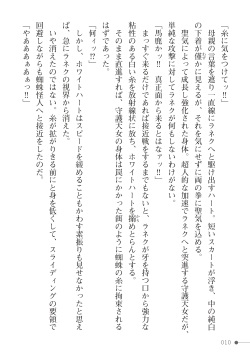 「糸に気をつけてッ!!」
　母親の言葉を遮り、直線にラネクへと駆け出すハート。短いスカートが浮き、中の純白
の下着が僅かに見えるが、それを気にせずに両の拳に聖気を込める。
　聖気によって成長し強化された身体が、超人的な加速でラネクへと突進する守護天女。
単純な攻撃に対してラネクが何もしないわけがない。
「馬鹿かッ!!　真正面から来るとはなァッ!!」
　まっすぐ来るだけであれば接近戦をするまでもないと、ラネクが牙を持つ口から強力な
粘性のある白い糸を放射線状に放ち、ホワイトハートを縮めとらんとする。
　そのまま直進すれば、守護天女の身体は罠にかかった餌のように蜘蛛の糸に拘束される
はずであった。
「何ィッ!?」
　しかし、ホワイトハートはスピードを緩めることもかわす素振りも見せなかったと思え
ば、急にラネクの視界から消えた。
　いや消えたのではない。糸が拡がりきる前にと身を低くして、スライディングの要領で
回避しながらも蜘蛛怪人へと接近をしたのだ。
「やああああぁぁっ!!」
010